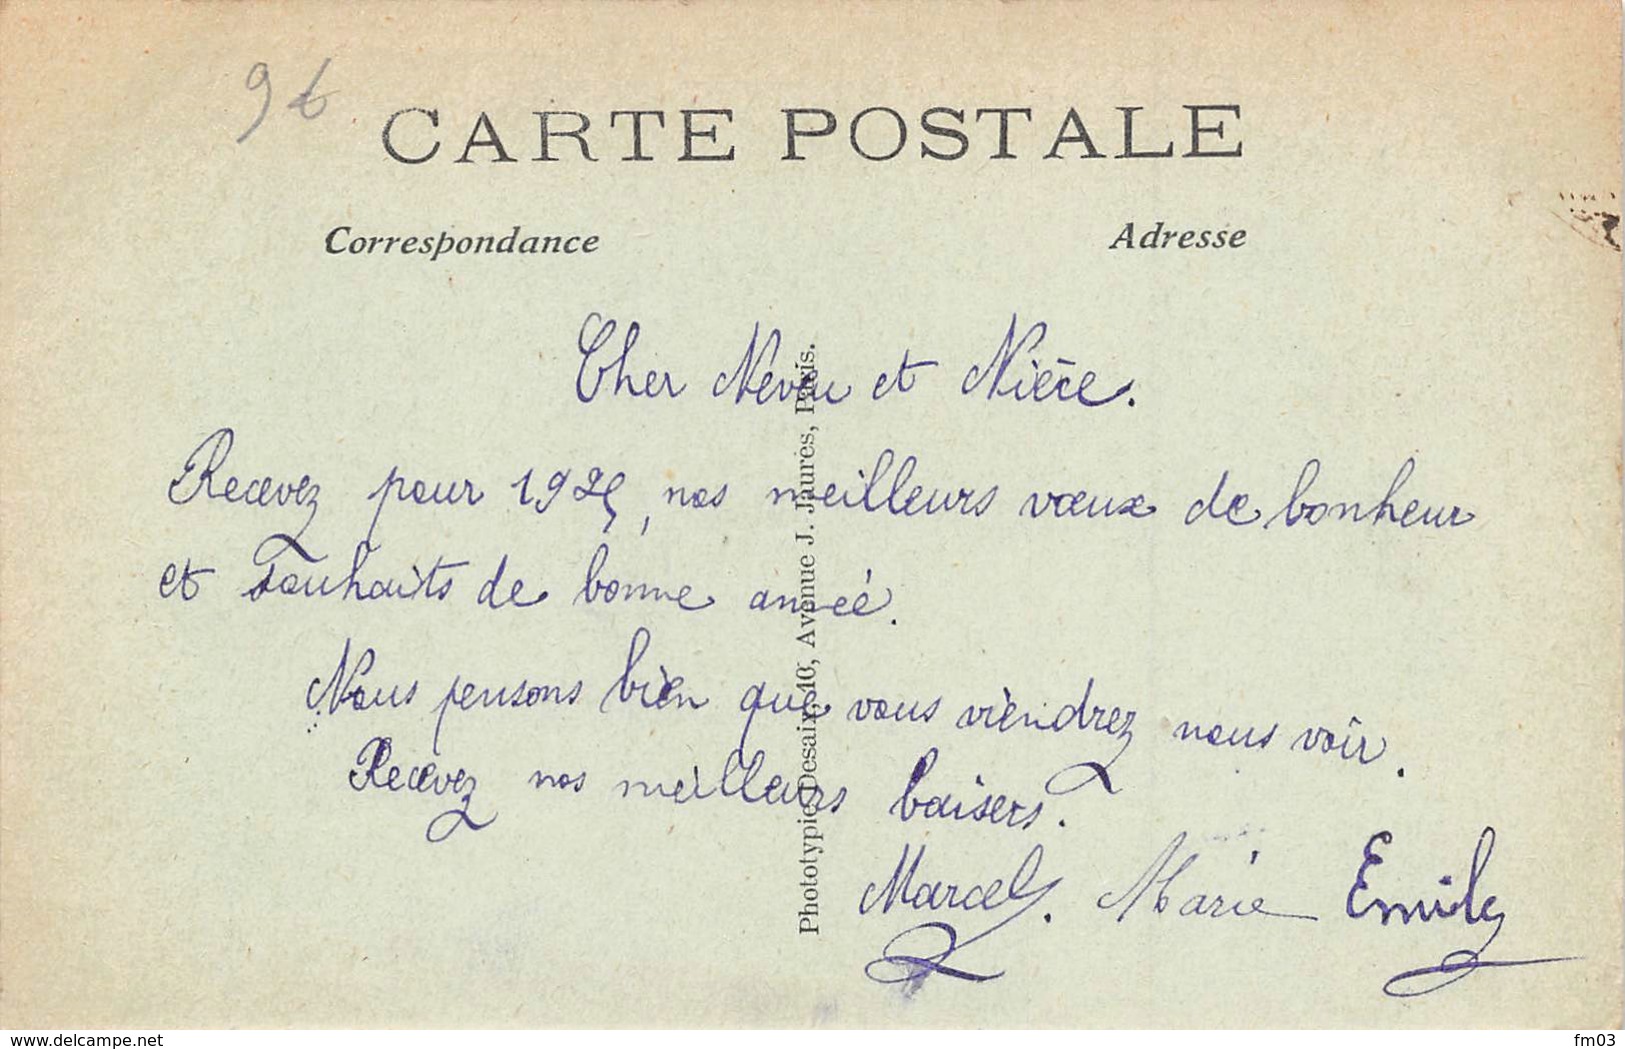 96
CARTE POSTALE
Correspondance
Adresse
Cher Neveu et Nièce.
Recevez pour 1925, nos meilleurs vœux de bonheur
et souhaits de bonne année.
Nous pensons bien que vous viendrez nous voir.
Recevez nos meilleurs baisers.
Marcel. Marie Emile
Phototypie Desaix, 10, Avenue J. Jaurès, Paris.
delcampe.net
fm03